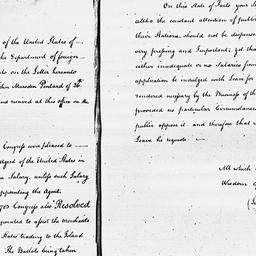 of the United States of
the Department of foreign
on the Letter hereunto
John Marsden Pintard of 26th
and remand at this office on the
Congress was pleased to
of the United States in
a Salary, unless such Salary
appointing the Agent.
Congress also Resolved
appointed to assist the Merchants
States trading to the Island
The Ballots being taken
On this State of Facts your
altho the constant attention of public
their Stations, should not be dispensed
very pressing and Important yet that
either inadequate or no Salaries from
application be indulged with leave for
rendered necessary by the Business of th
provided no particular Circumstances
public oppose it and therefore that
Leave he requests
All which
Wisdom of